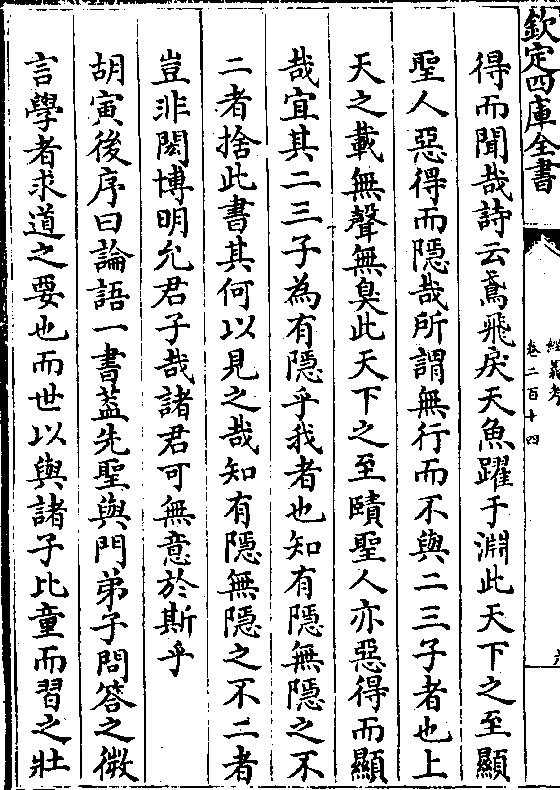 欽定四庫全書
經義考
卷二百十四
得而聞哉詩云鳶飛戾天魚躍于淵此天下之至顯
聖人惡得而隱哉所謂無行而不與二三子者也上
天之載無聲無臭此天下之至賾聖人亦惡得而顯
哉宜其二三子為有隠乎我者也知有隠無隠之不
二者捨此書其何以見之哉知有隠無隠之不二者
豈非閎博明允君子哉諸君可無意於斯乎
胡寅後序曰論語一書葢先聖與門弟子問答之微
言學者求道之要也而世以與諸子比童而習之壯